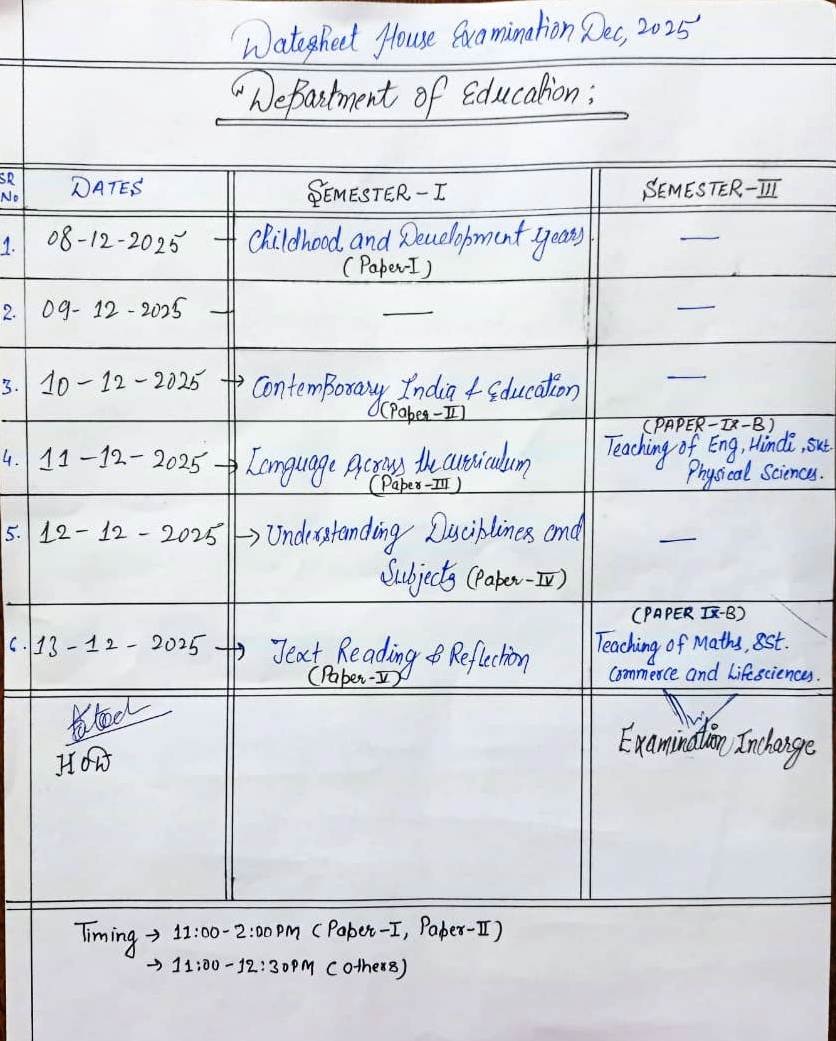 Datesheet House Examination Dec, 2025
"Department of Education;
SR No DATES SEMESTER - I SEMESTER-III
1. 08-12-2025 Childhood and Development years. —
(Paper-I)
2. 09-12-2025 — — —
3. 10-12-2025 → Contemporary India & Education —
(Paper-II)
(PAPER-IX-B)
4. 11-12-2025 → Language Across the curriculum Teaching of Eng, Hindi, Skt.
(Paper-III) Physical Sciences.
5. 12-12-2025 → Understanding Disciplines and —
Subjects (Paper-IV)
(PAPER IX-B)
6. 13-12-2025 → Text Reading & Reflection Teaching of Maths, SSt.
(Paper-V) Commerce and Lifesciences.
HOD Examination Incharge
Timing → 11:00-2:00PM (Paper-I, Paper-II)
→ 11:00-12:30PM (others)